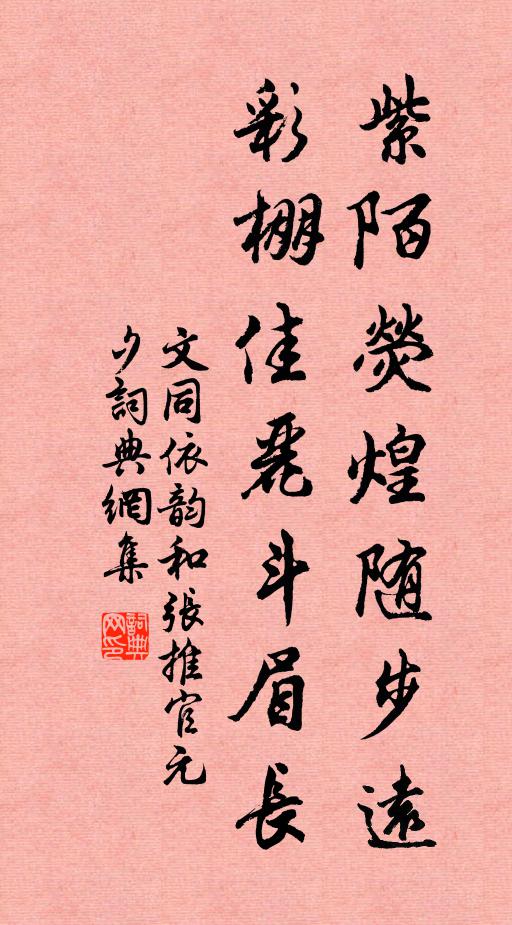 紫陌熒煌随步遠
彩棚佳麗斗眉長
文同依韵和張推官元
夕詞典網集
詞典网印